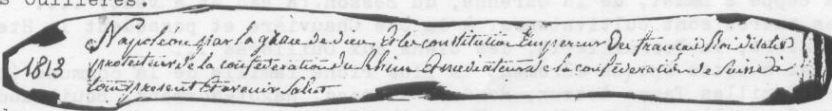 s Cuillères.
1813
Napoléon par la grace de dieu, et les constitution Empereur Des français Roi d'italie
protecteur de la confédération du Rhin Et mediateur de la confédération de Suisse à
tous present Et avenir Salut